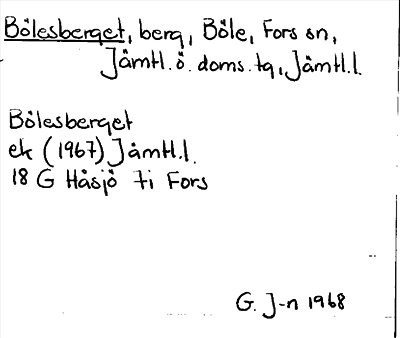 Bölesberget, berg, Böle, Fors sn,
Jämtl. ö. doms. tg, Jämtl. l.
Bölesberget
ek (1967) Jämtl. l.
18 G Håsjö 7i Fors
G. J-n 1968